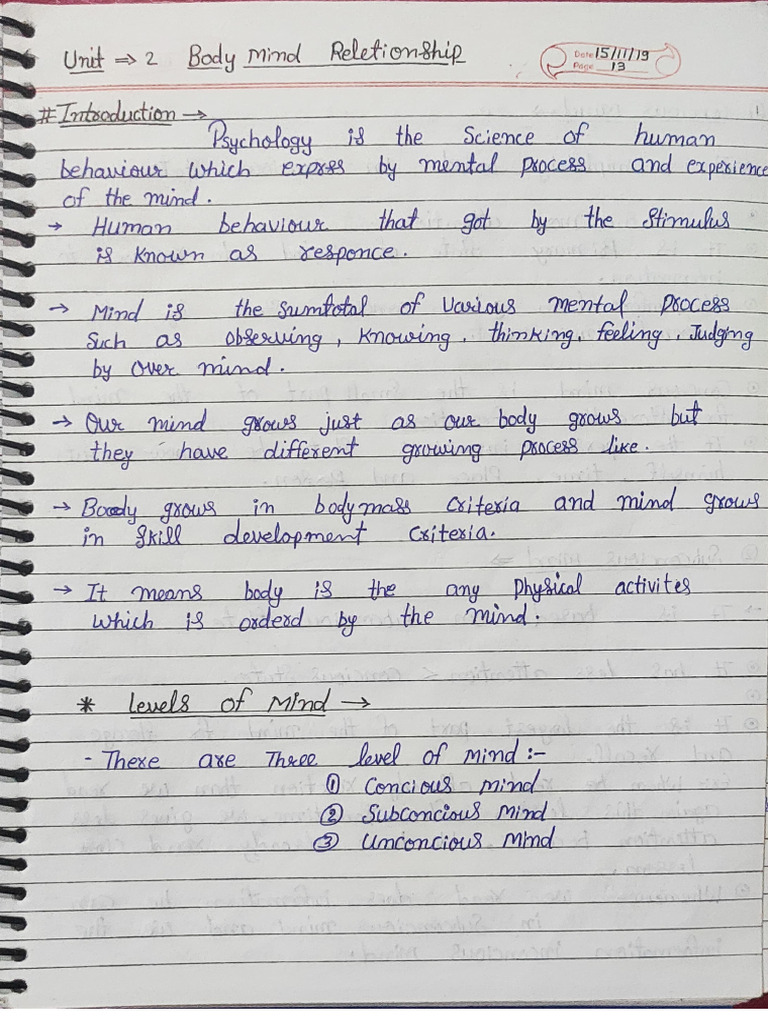 Unit ⇒ 2 Body Mind Reletionship
Date 15/11/19
Page 13
# Introduction →
Psychology is the Science of human
behaviour which expres by mental process and experience
of the mind.
→ Human behaviour that got by the Stimulus
is known as responce.
→ Mind is the sumtotal of various mental process
Such as observing, knowing, thinking, feeling, Judging
by over mind.
→ Our mind grows just as our body grows but
they have different growing process like.
→ Body grows in bodymass criteria and mind grows
in skill development criteria.
→ It means body is the any physical activites
which is orderd by the mind.
* Levels of Mind →
- There are Three level of mind :-
① Concious mind
② Subconcious Mind
③ Unconcious Mind